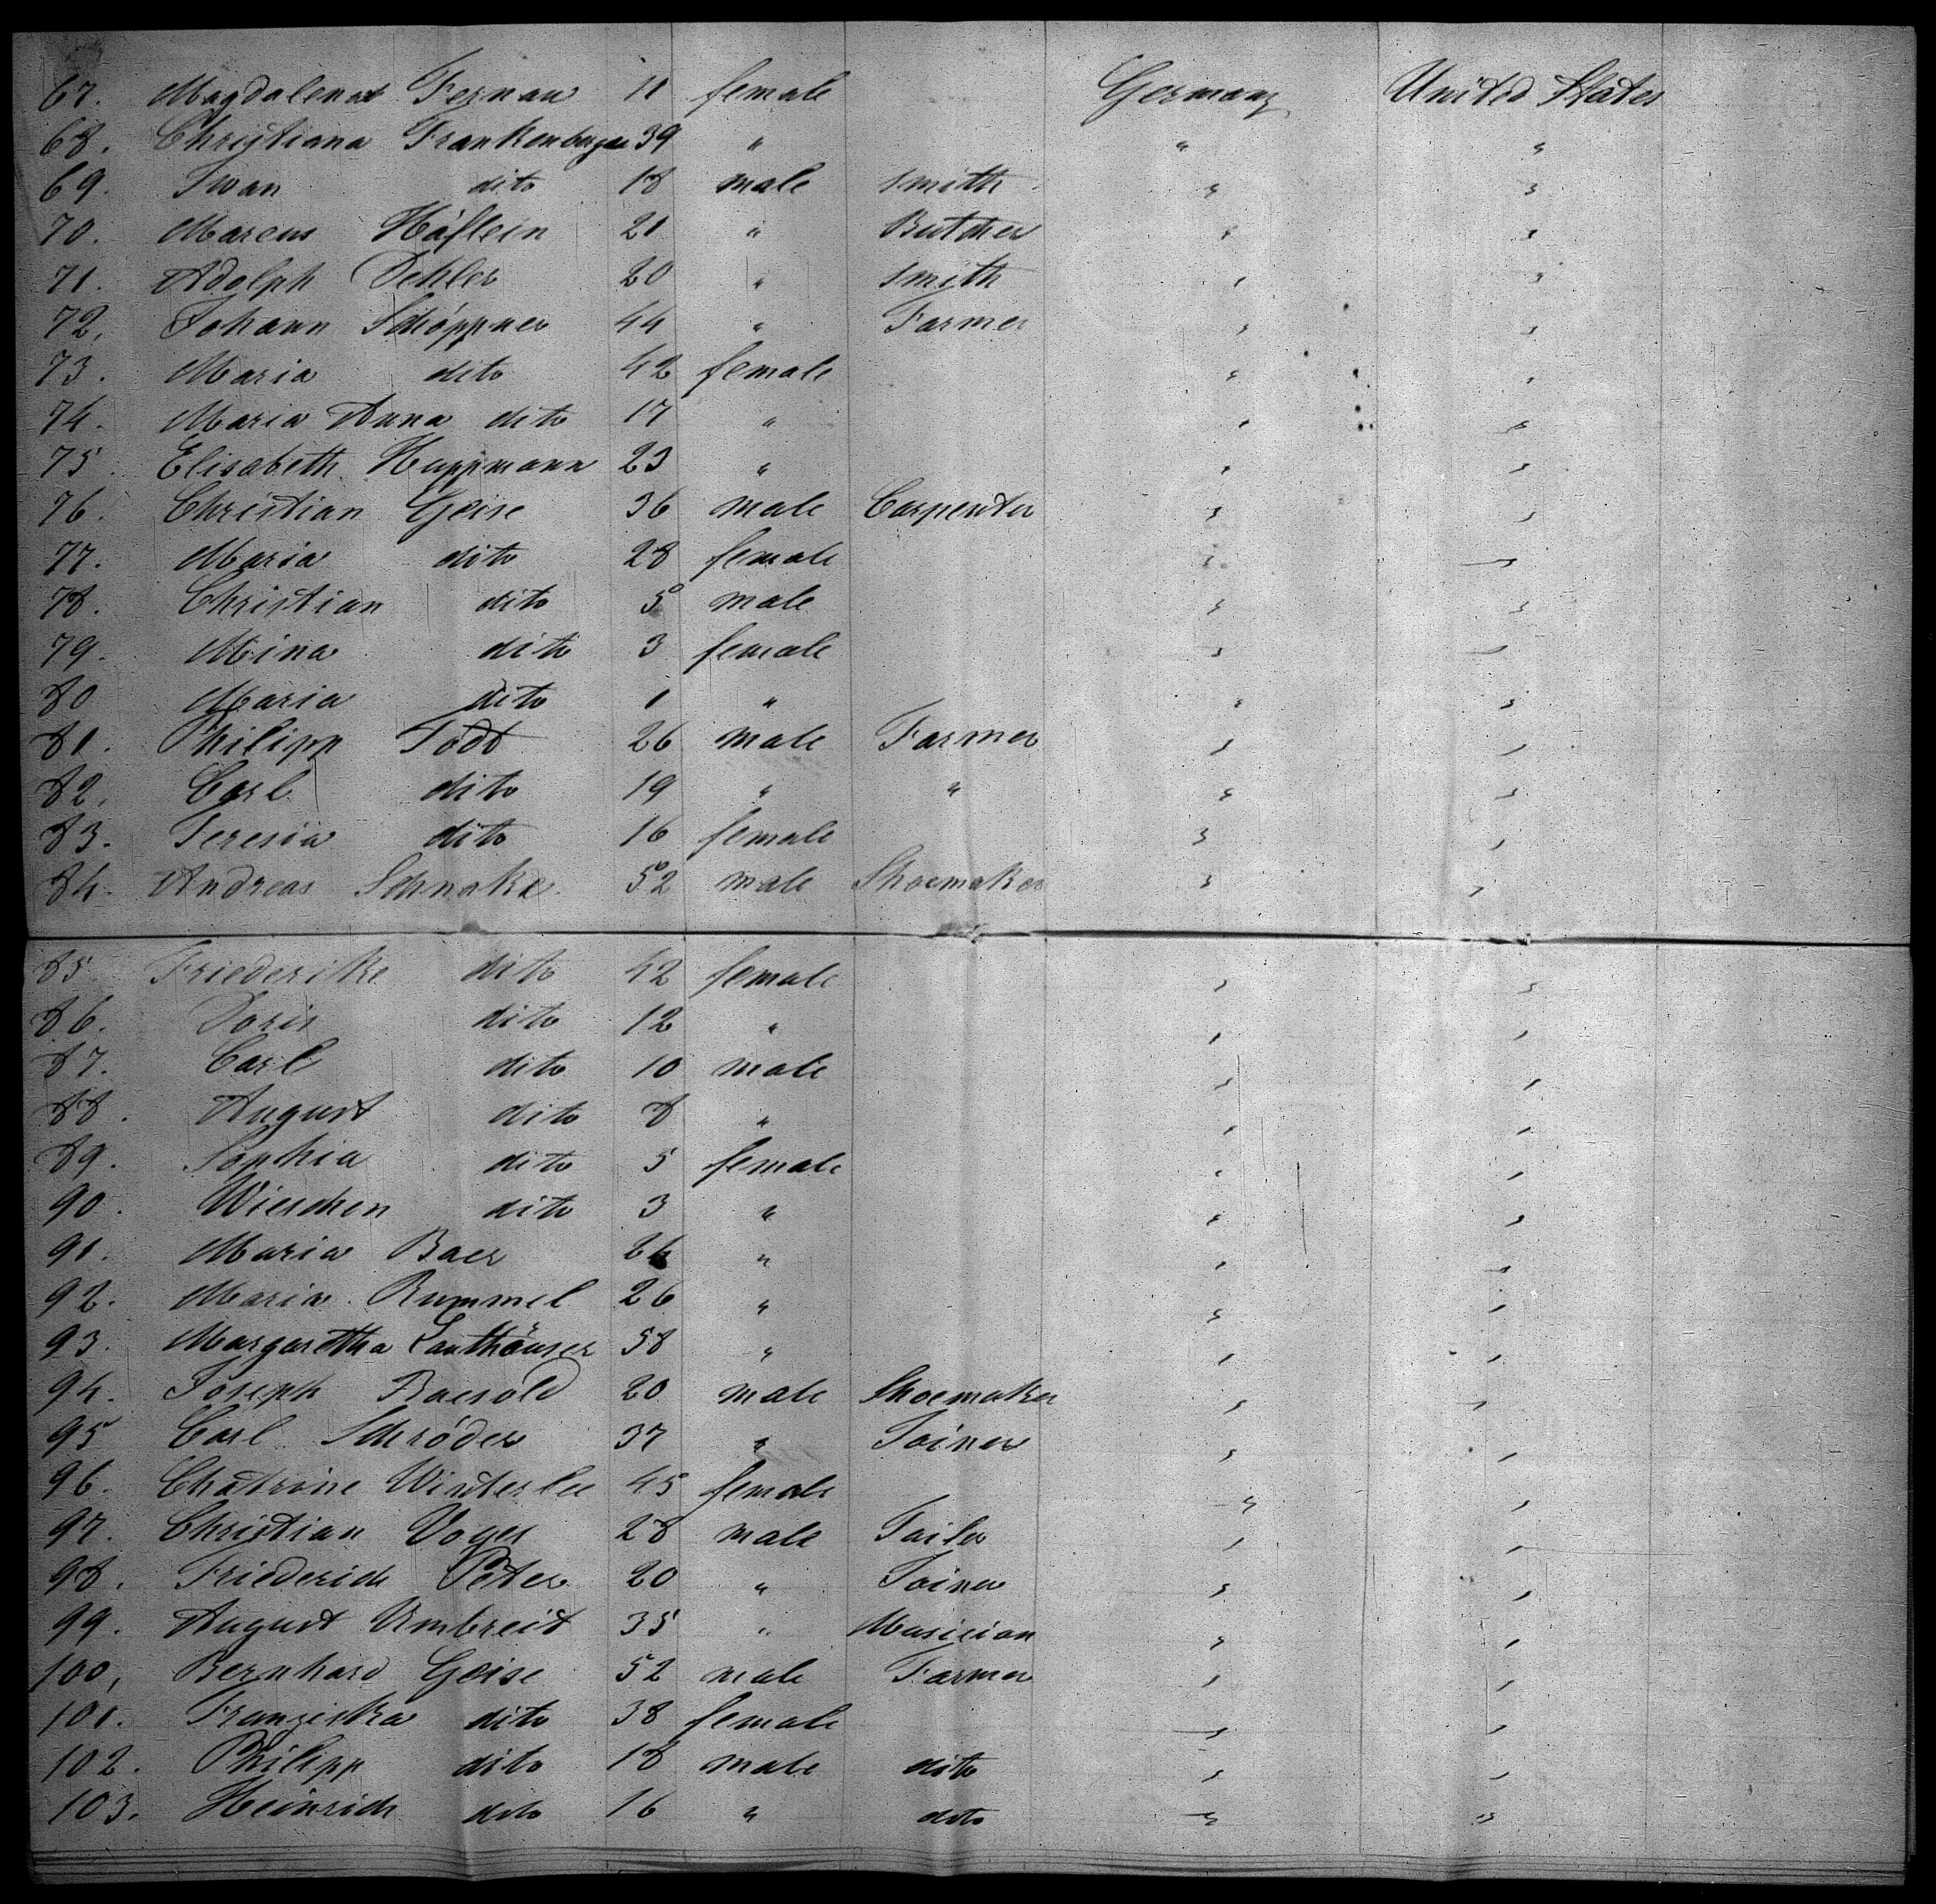 67. Magdalena Fernau 11 female Germany United States
68. Christiana Frankenberger 39 " " "
69. Iwan dito 18 male smith " "
70. Marcus Häflein 21 " Butcher " "
71. Adolph Oehler 20 " smith " "
72. Johann Schöppner 44 " Farmer " "
73. Maria dito 42 female " "
74. Maria Anna dito 17 " " "
75. Elisabeth Huppmann 23 " " "
76. Christian Geise 36 male Carpenter " "
77. Maria dito 28 female " "
78. Christian dito 5 male " "
79. Mina dito 3 female " "
80 Maria dito 1 " " "
81. Philipp Todt 26 male Farmer " "
82. Carl dito 19 " " " "
83. Teresia dito 16 female " "
84. Andreas Schnake 52 male Shoemaker " "
85 Friederike dito 42 female " "
86. Doris dito 12 " " "
87. Carl dito 10 male " "
88. August dito 8 " " "
89. Sophia dito 5 female " "
90. Wieschen dito 3 " " "
91. Maria Baer " " "
92. Maria Rummel 26 " " "
93. Margaretha Lauthäuser 58 " " "
94. Joseph Baerold 20 male Shoemaker " "
95 Carl Schröder 37 " Joiner " "
96. Chatrine Winterlee 45 female " "
97. Christian Voges 28 male Tailor " "
98. Friederich Peter 20 " Joiner " "
99. August Umbreit 35 " Musician " "
100, Bernhard Geise 52 male Farmer " "
101. Franziska dito 38 female " "
102. Philipp dito 18 male dito " "
103. Heinrich dito 16 " dito " "